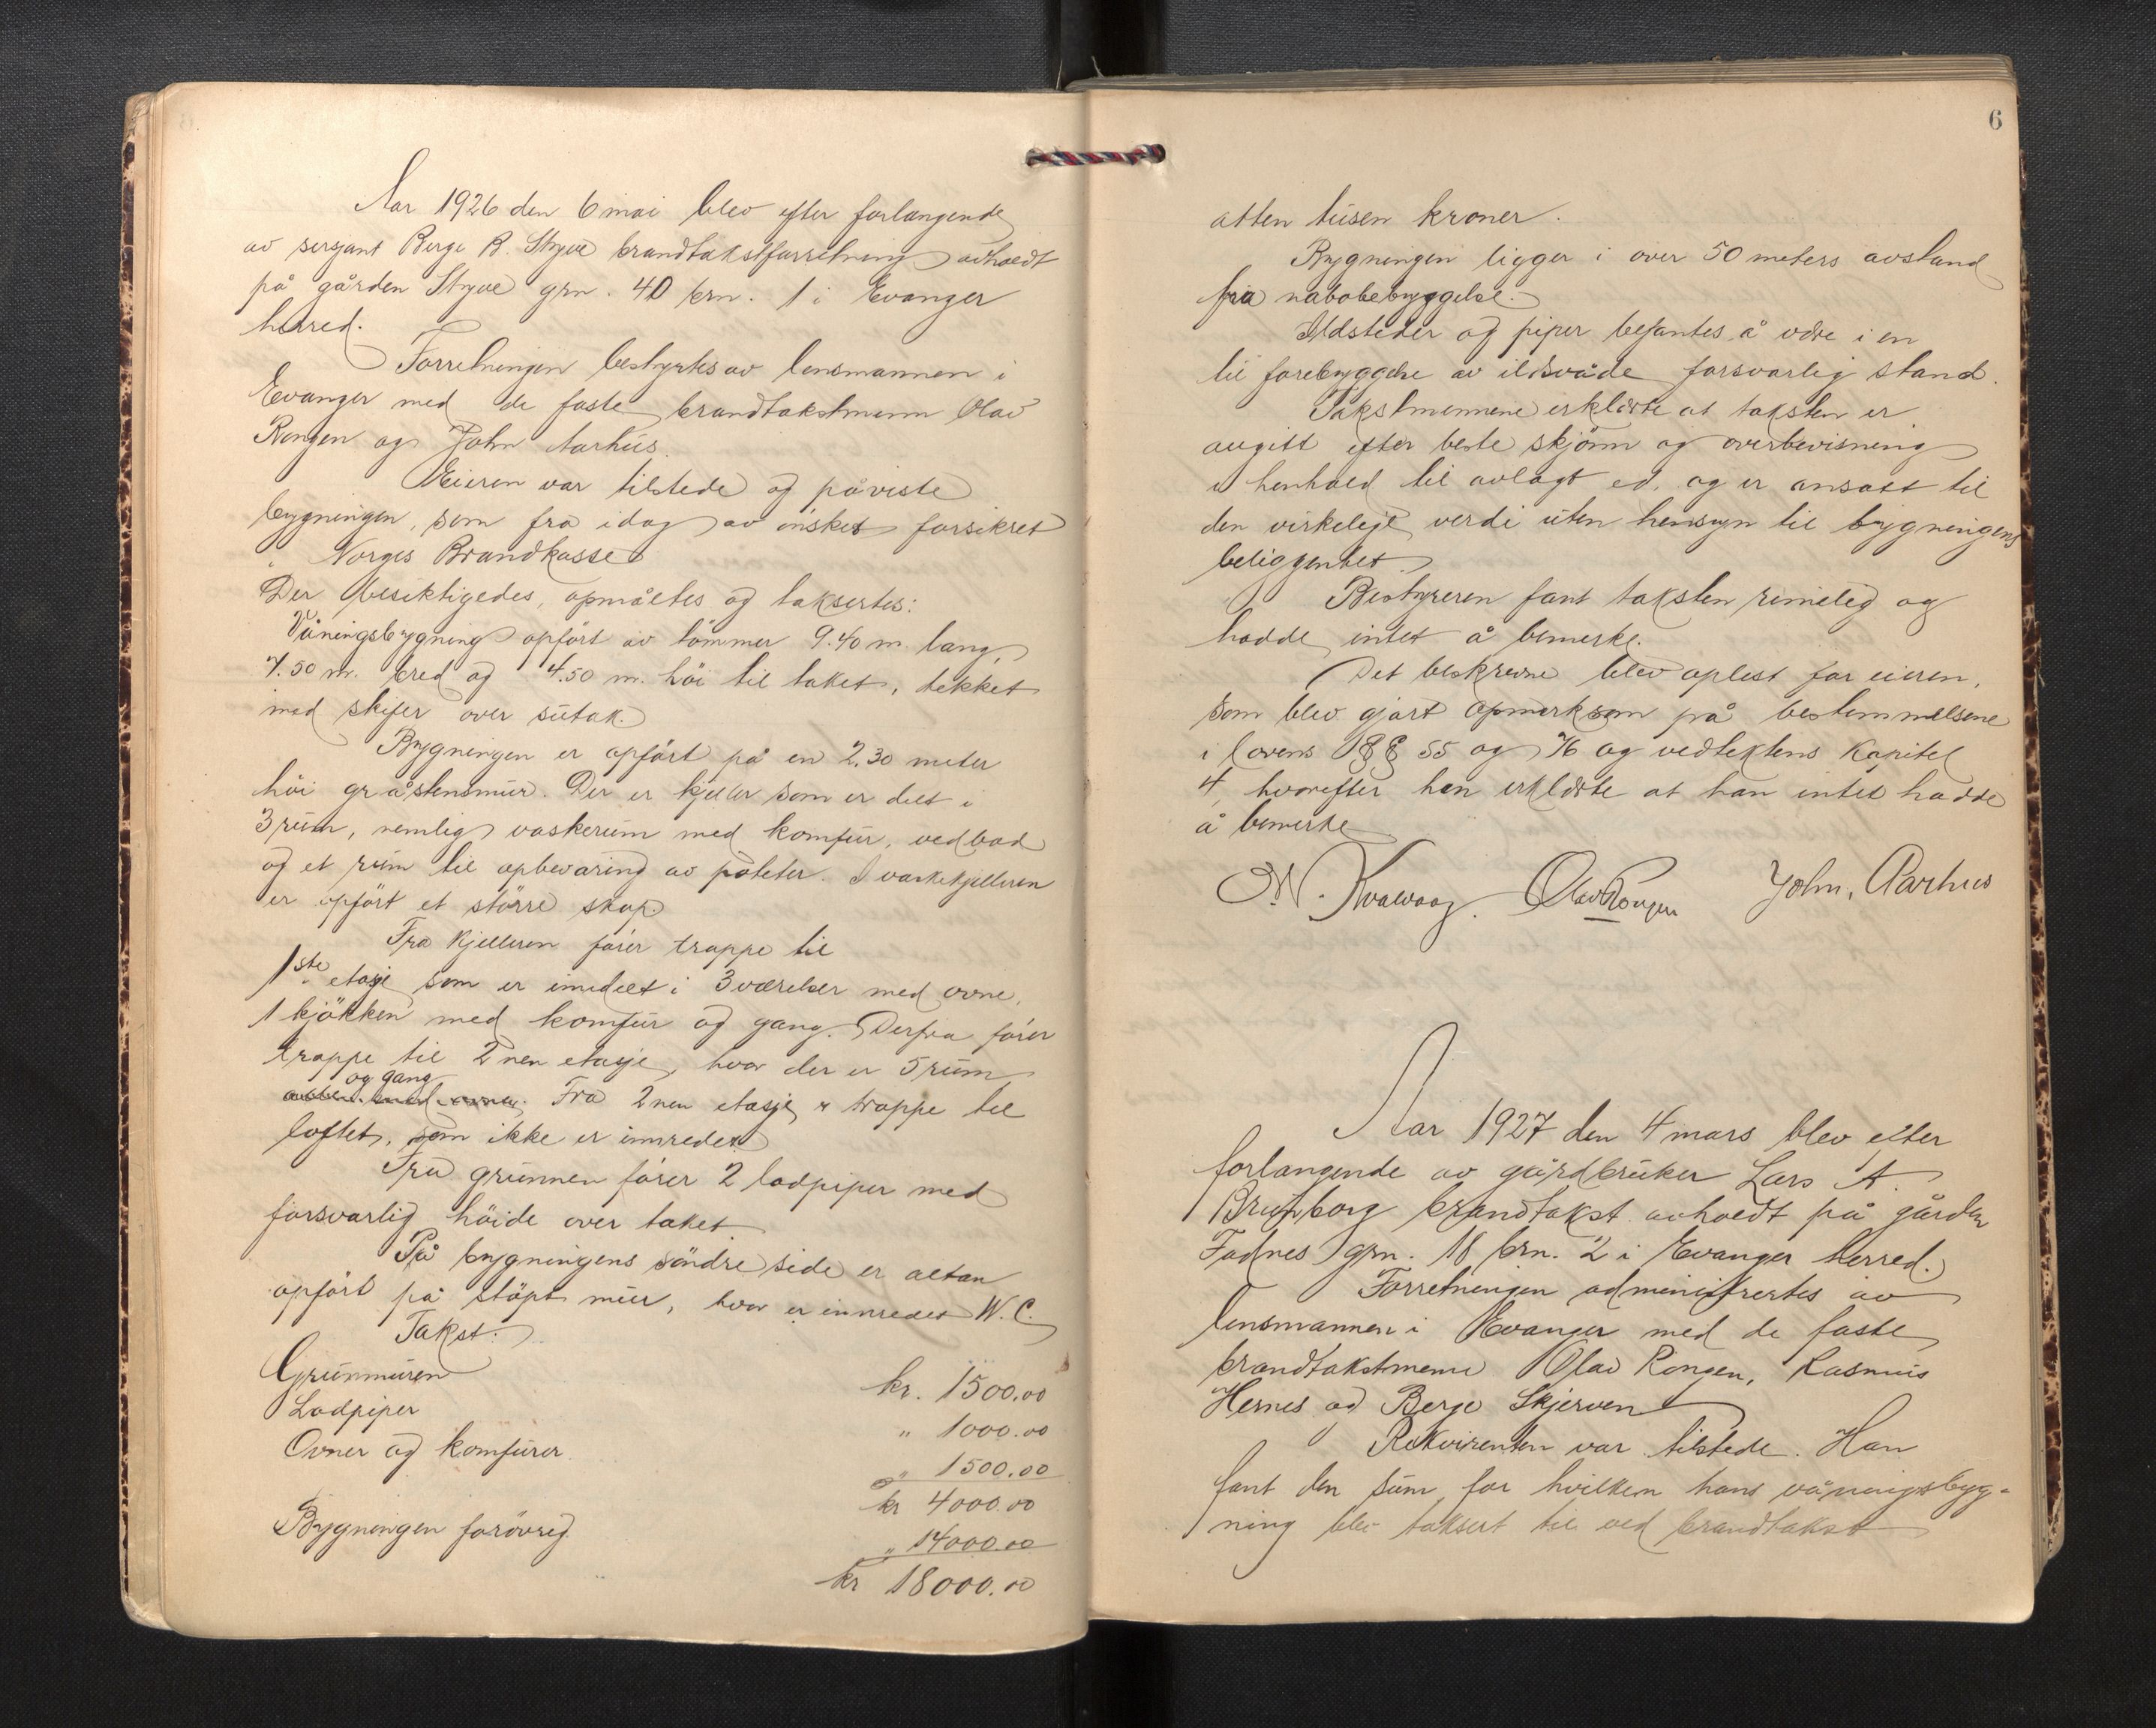 Aar 1926 den 6 mai blev efter forlangende
av sersjant Berge B. Styve brandtakstforretning avholdt
på gården Styve grn. 40 brn. 1 i Evanger
herred.
Forretningen bestyrtes av lensmannen i
Evanger med de faste brandtakstmenn Olav
Rongen og John Aarhus.
Eieren var tilstede og påviste
bygningen, som fra idag av önsket forsikret
i Norges Brandkasse
Der besiktigedes, opmåltes og taksertes:
Våningsbygning opfört av tömmer 9.40 m. lang,
7.50 m. bred og 4.50 m. höi til taket, tekket
med skifer over sutak.
Bygningen er opfört på en 2.30 meter
höi gråstensmur. Der er kjeller som er delt i
3 rum, nemlig vaskerum med komfur, vedbod
og et rum til opbevaring av poteter. I vaskekjelleren
er opfört et större skap.
Fra kjelleren förer trappe til
1ste etasje som er innedelt i 3 værelser med ovne,
1 kjökken med komfur og gang. Derfra förer
trappe til 2nen etasje, hvor der er 5 rum
og gang
Fra 2nen etasje er trappe til
loftet, som ikke er innredet
Fra grunnen förer 2 lodpiper med
forsvarlig höide over taket.
På bygningens söndre side er altan
opfört på stöpt mur, hvor er innredet W.C.
Takst:
Grunmuren kr. 1500.00
Lodpiper " 1000.00
Ovner og komfurer " 1500.00
kr 4000.00
Bygningen forövrig " 14000.00
kr 18000.00
6
atten tusen kroner.
Bygningen ligger i over 50 meters avstand
fra nabobebyggelse.
Ildsteder og piper befantes å være i en
til forebyggelse av ildsvåde forsvarlig stand.
Takstmennene erklærte at taksten er
avgitt efter beste skjönn og overbevisning
i henhold til avlagt ed, og er ansatt til
den virkelige verdi uten hensyn til bygningens
beliggenhet.
Bestyreren fant taksten rimelig og
hadde intet å bemerke.
Det beskrevne blev oplest for eieren,
som blev gjort opmerksom på bestemmelsene
i lovens §§ 55 og 76 og vedtektens kapitel
4, hvorefter han erklærte at han intet hadde
å bemerke
N. Kvalvaag. Olav Rongen John, Aarhus
Aar 1927 den 4 mars blev efter
forlangende av gårdbruker Lars A.
Brunborg brandtakst avholdt på gården
Fadnes grn. 18 brn. 2 i Evanger herred.
Forretningen administrertes av
lensmannen i Evanger med de faste
brandtakstmenn Olav Rongen, Rasmus
Hernes og Berge Skjerven
Rekvirenten var tilstede. Han
fant den sum for hvilken hans våningsbyg-
ning blev taksert til ved brandtakst